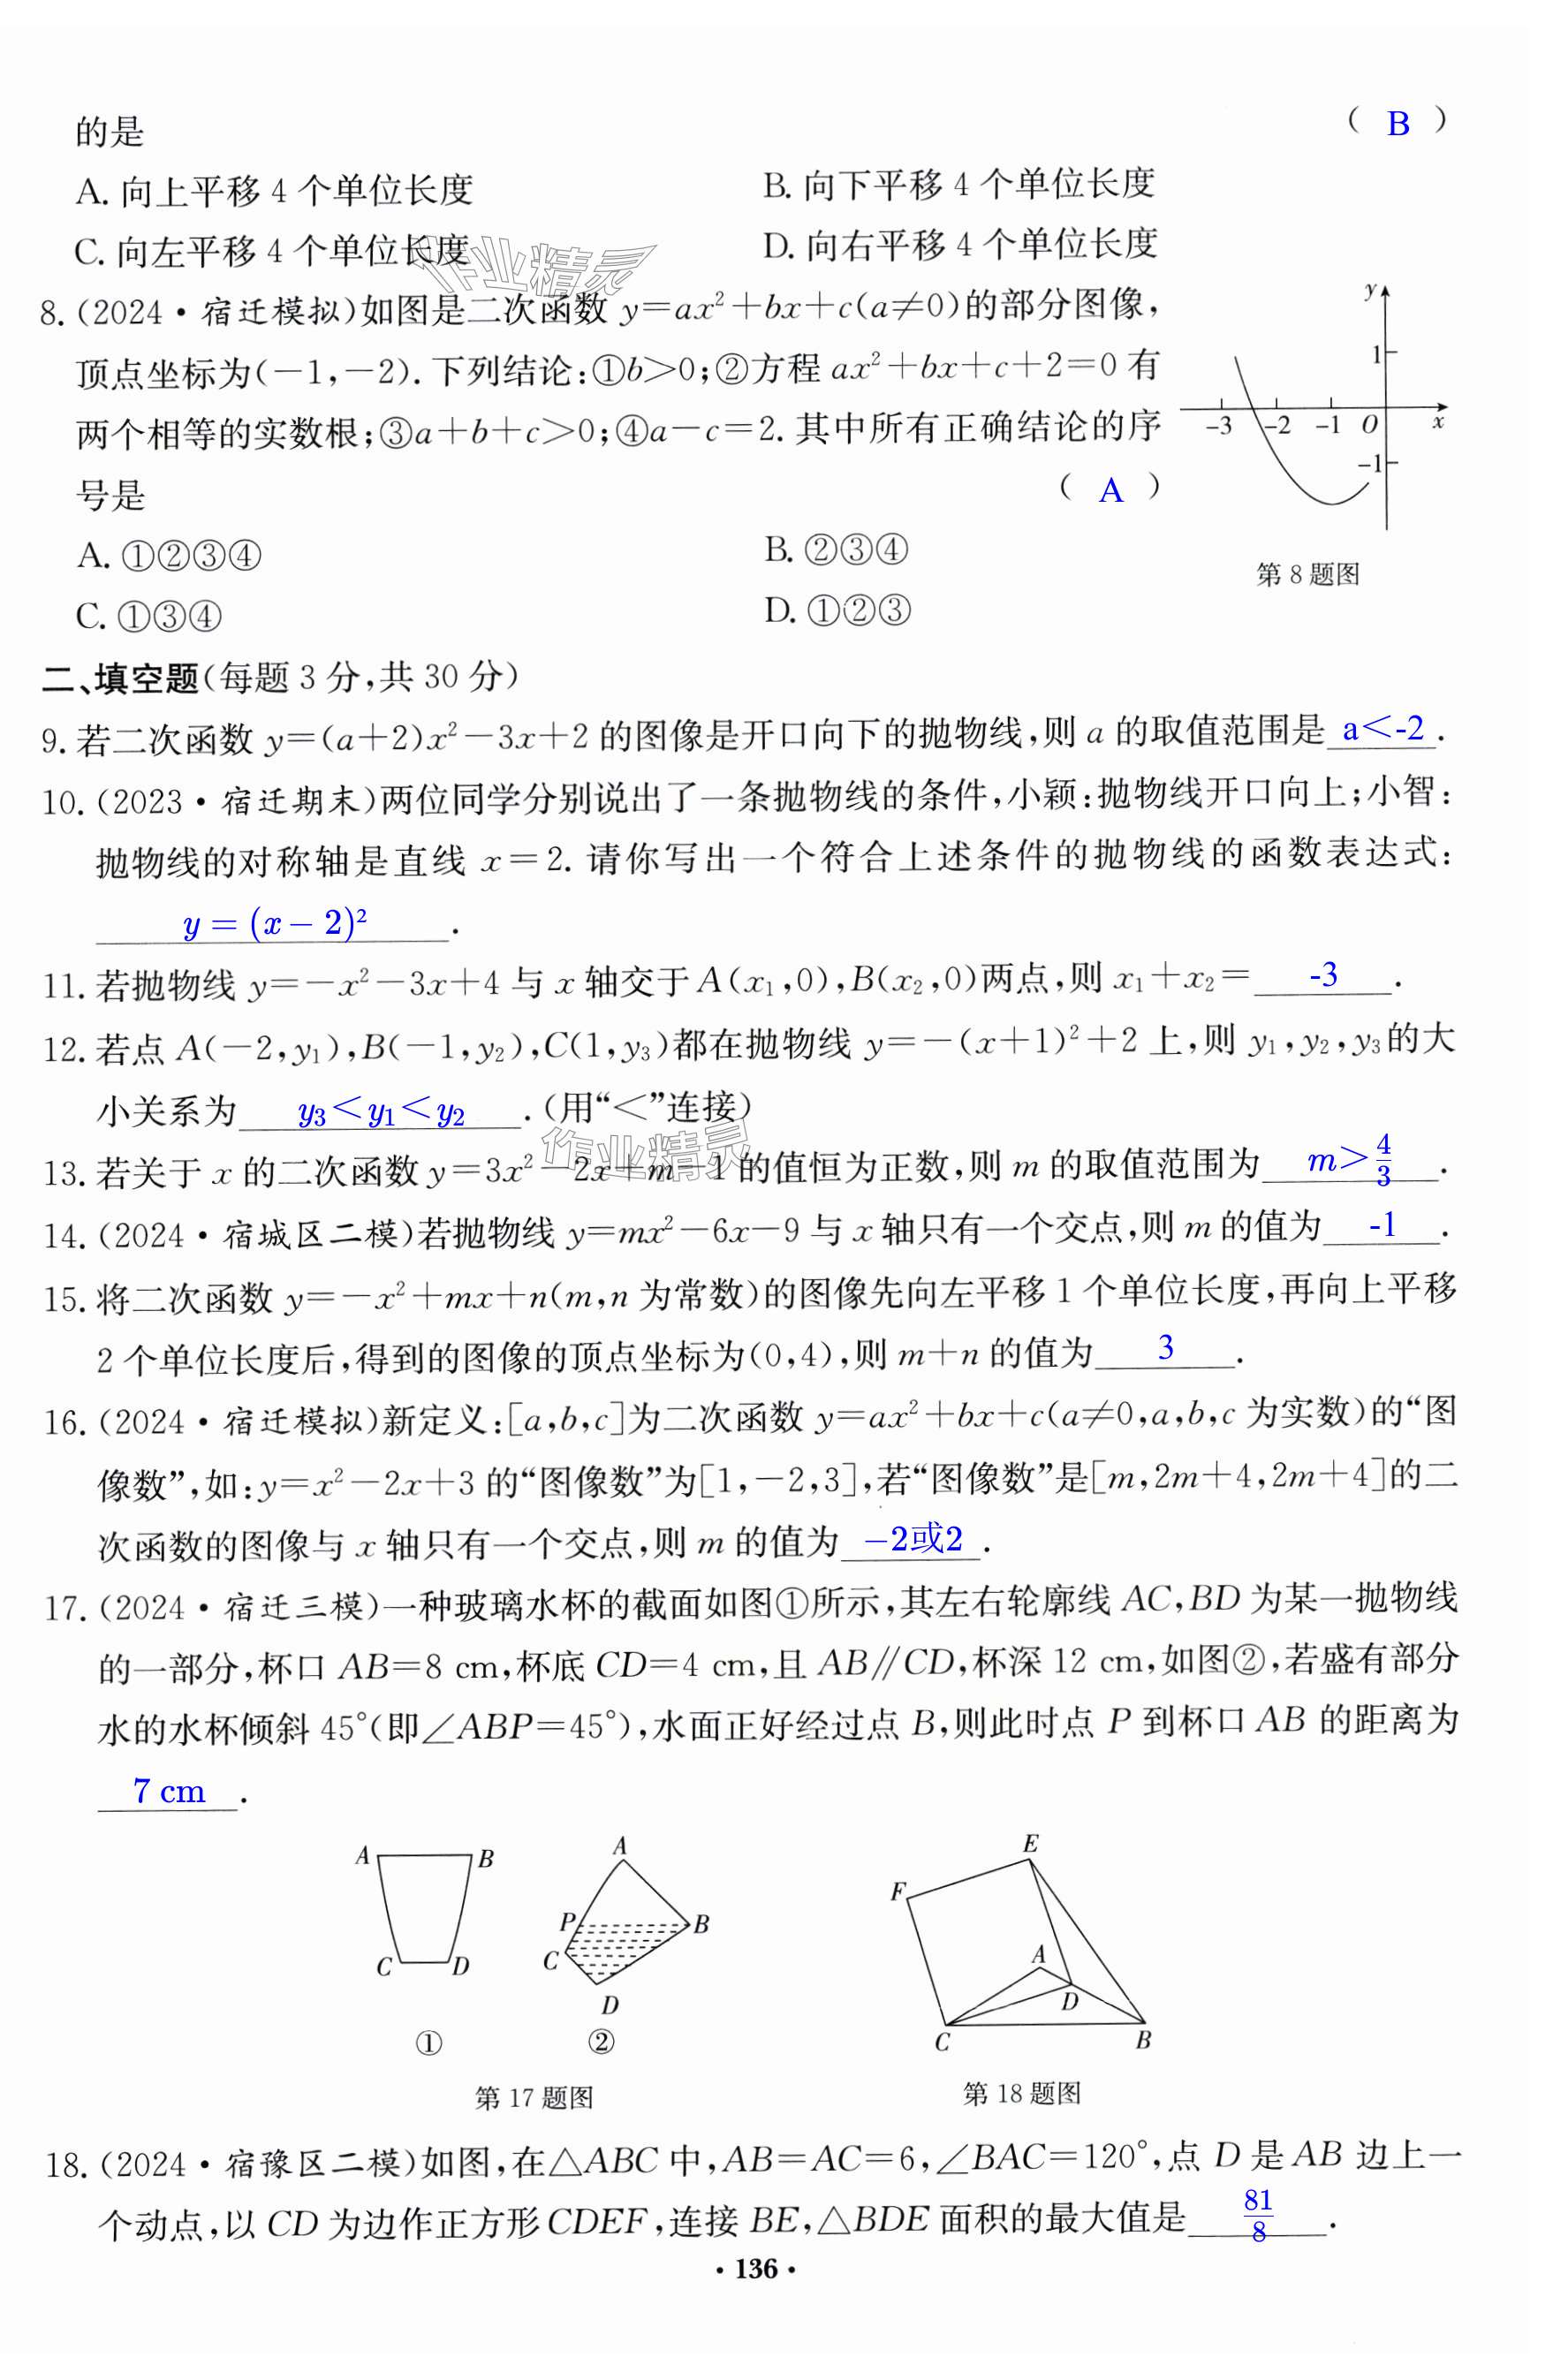 的是 （ B ）
A. 向上平移 4 个单位长度 B. 向下平移 4 个单位长度
C. 向左平移 4 个单位长度 D. 向右平移 4 个单位长度
作业精灵
8. (2024・宿迁模拟)如图是二次函数 y=ax²+bx+c(a≠0)的部分图像,
顶点坐标为(-1,-2). 下列结论:①b>0;②方程 ax²+bx+c+2=0 有
两个相等的实数根;③a+b+c>0;④a-c=2. 其中所有正确结论的序
号是 （ A ）
A. ①②③④ B. ②③④
C. ①③④ D. ①②③
y
1
-3 -2 -1 O x
-1
第 8 题图
二、填空题(每题 3 分,共 30 分)
9. 若二次函数 y=(a+2)x²-3x+2 的图像是开口向下的抛物线,则 a 的取值范围是 a<-2 .
10. (2023・宿迁期末)两位同学分别说出了一条抛物线的条件,小颖:抛物线开口向上;小智:
抛物线的对称轴是直线 x=2. 请你写出一个符合上述条件的抛物线的函数表达式:
y=(x-2)² .
11. 若抛物线 y=-x²-3x+4 与 x 轴交于 A(x₁,0),B(x₂,0)两点,则 x₁+x₂= -3 .
12. 若点 A(-2,y₁),B(-1,y₂),C(1,y₃)都在抛物线 y=-(x+1)²+2 上,则 y₁,y₂,y₃的大
小关系为 y₃<y₁<y₂ .(用“<”连接)
作业精灵
13. 若关于 x 的二次函数 y=3x²-2x+m-1 的值恒为正数,则 m 的取值范围为 m>4/3 .
14. (2024・宿城区二模)若抛物线 y=mx²-6x-9 与 x 轴只有一个交点,则 m 的值为 -1 .
15. 将二次函数 y=-x²+mx+n(m,n 为常数)的图像先向左平移 1 个单位长度,再向上平移
2 个单位长度后,得到的图像的顶点坐标为(0,4),则 m+n 的值为 3 .
16. (2024・宿迁模拟)新定义:[a,b,c]为二次函数 y=ax²+bx+c(a≠0,a,b,c 为实数)的“图
像数”,如:y=x²-2x+3 的“图像数”为[1,-2,3],若“图像数”是[m,2m+4,2m+4]的二
次函数的图像与 x 轴只有一个交点,则 m 的值为 -2或2 .
17. (2024・宿迁三模)一种玻璃水杯的截面如图①所示,其左右轮廓线 AC,BD 为某一抛物线
的一部分,杯口 AB=8 cm,杯底 CD=4 cm,且 AB∥CD,杯深 12 cm,如图②,若盛有部分
水的水杯倾斜 45°(即∠ABP=45°),水面正好经过点 B,则此时点 P 到杯口 AB 的距离为
7 cm .
A B C D
①
A P B C D
②
第 17 题图
E F A D C B
第 18 题图
18. (2024・宿豫区二模)如图,在△ABC 中,AB=AC=6,∠BAC=120°,点 D 是 AB 边上一
个动点,以 CD 为边作正方形 CDEF,连接 BE,△BDE 面积的最大值是 81/8 .
• 136 •